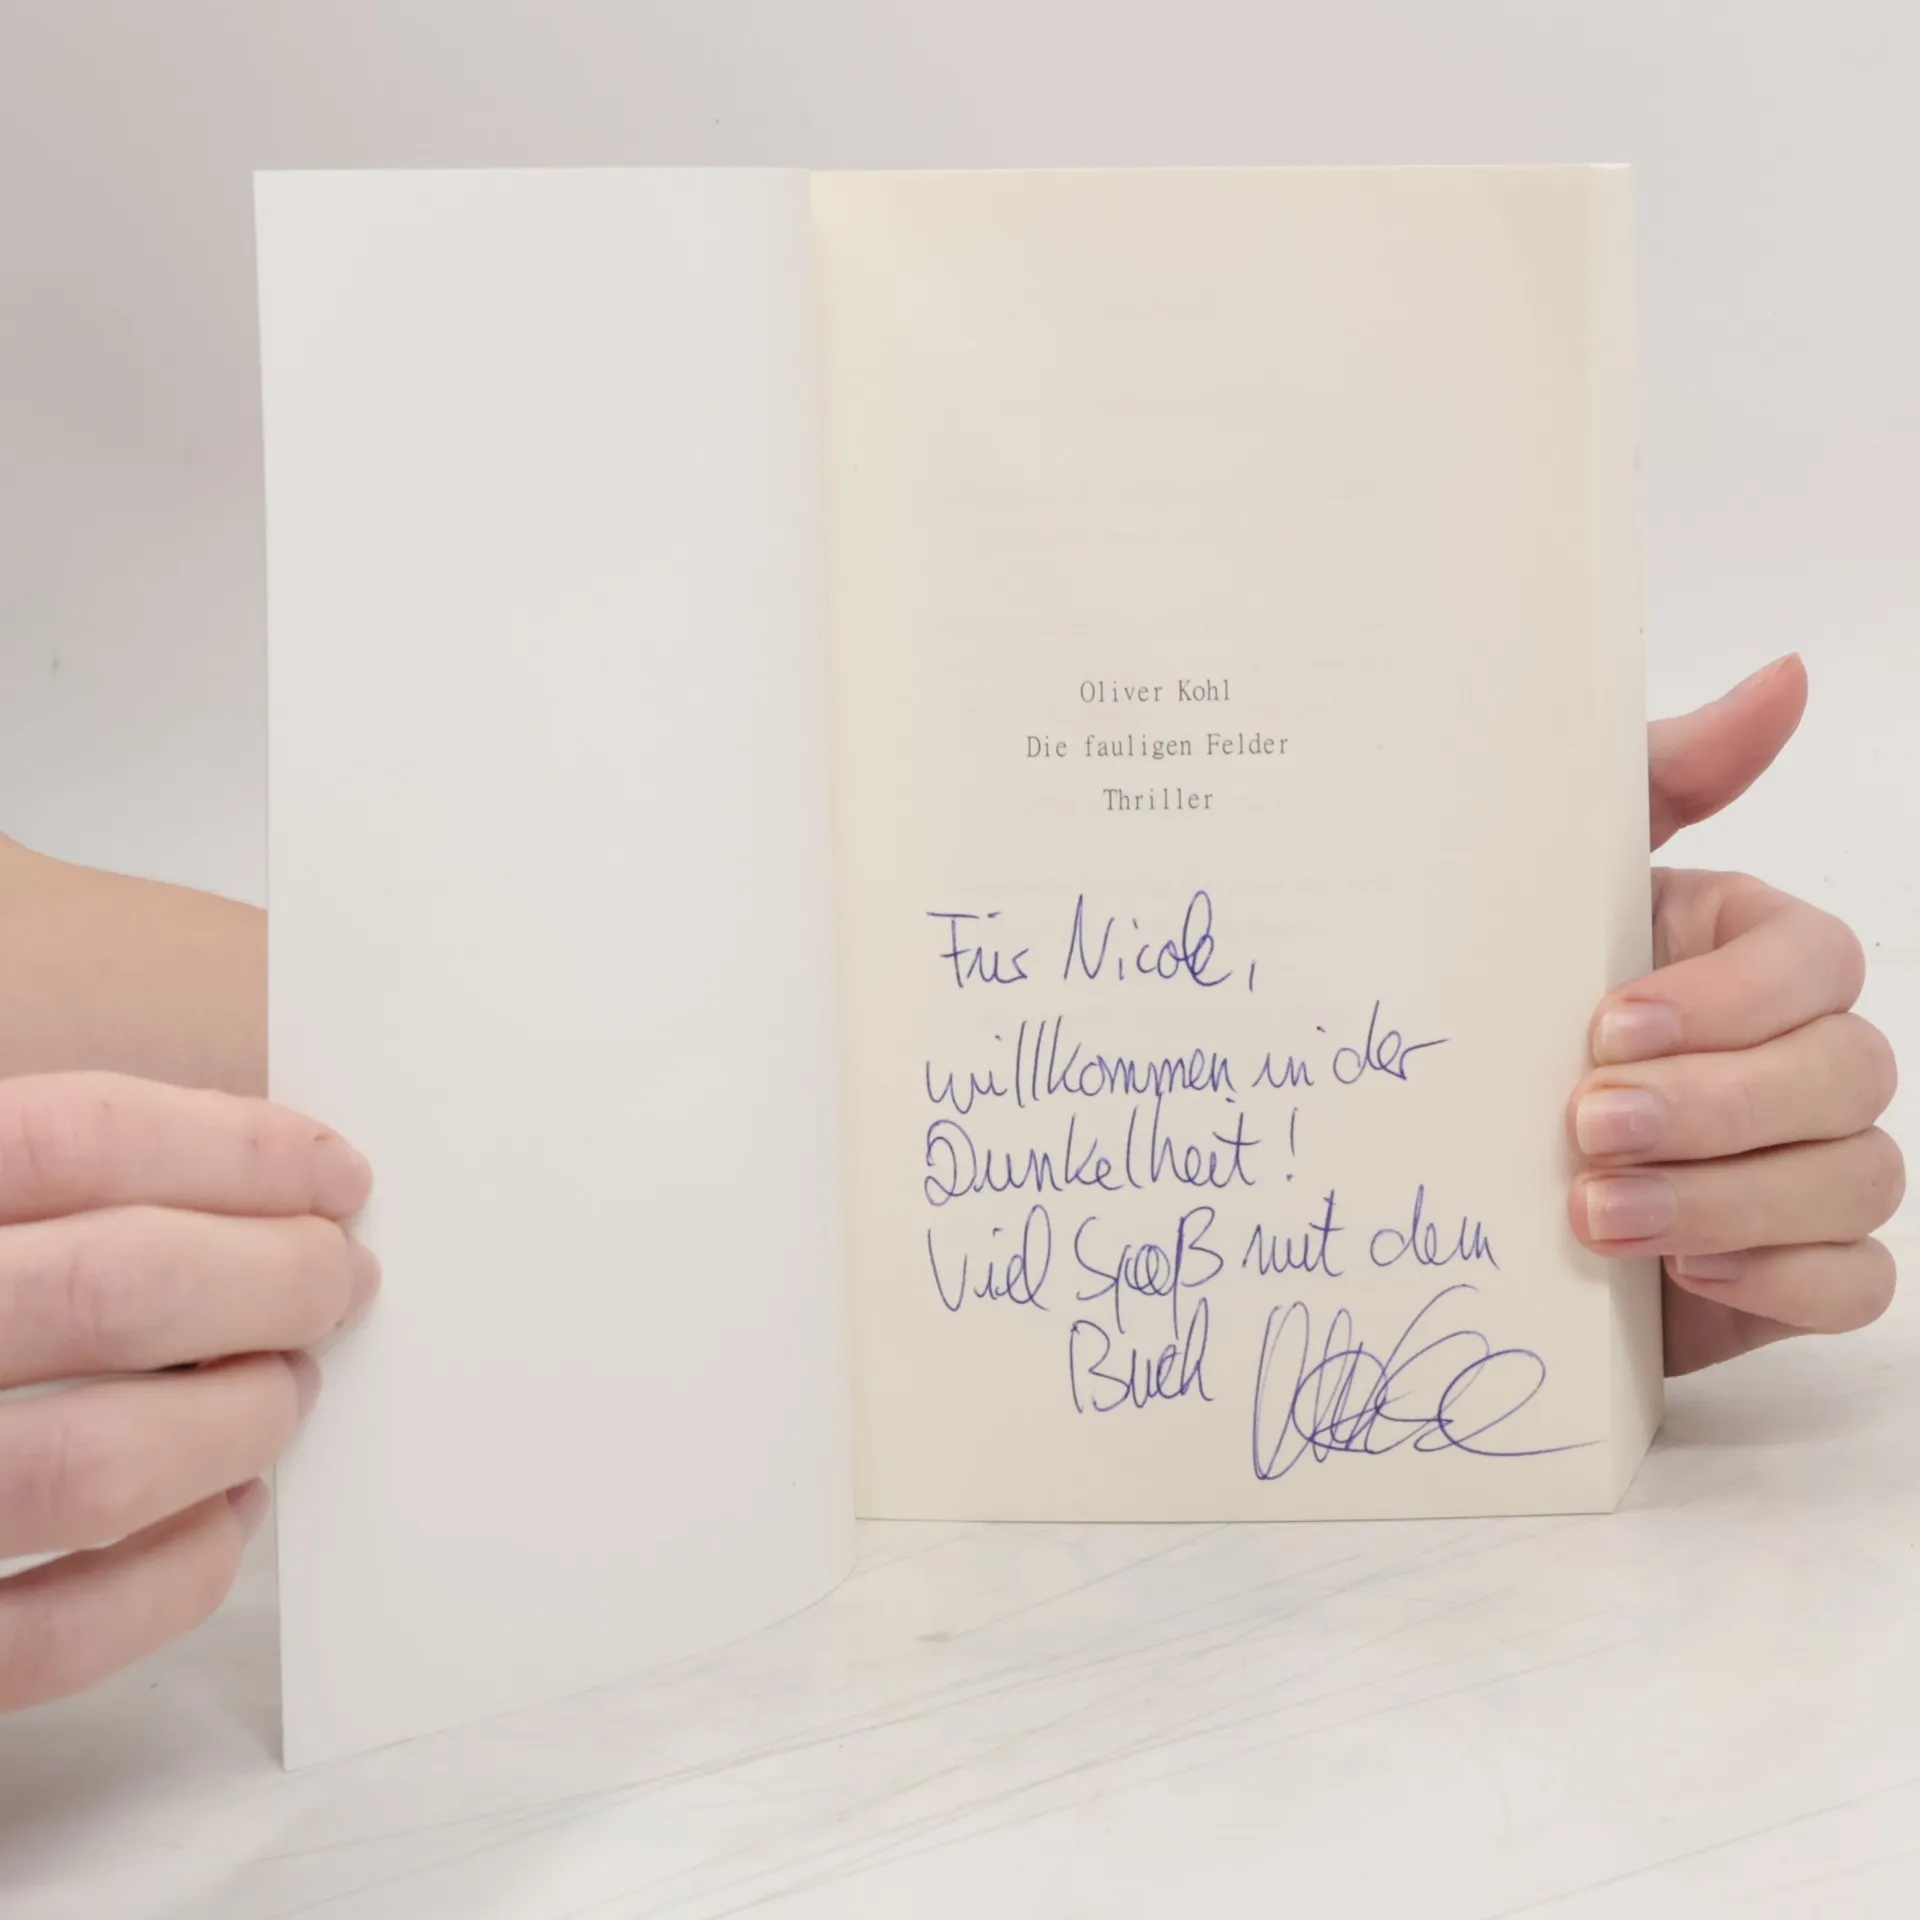 Oliver Kohl
Die fauligen Felder
Thriller
Für Nicole,
willkommen in der
Dunkelheit!
Viel Spaß mit dem
Buch